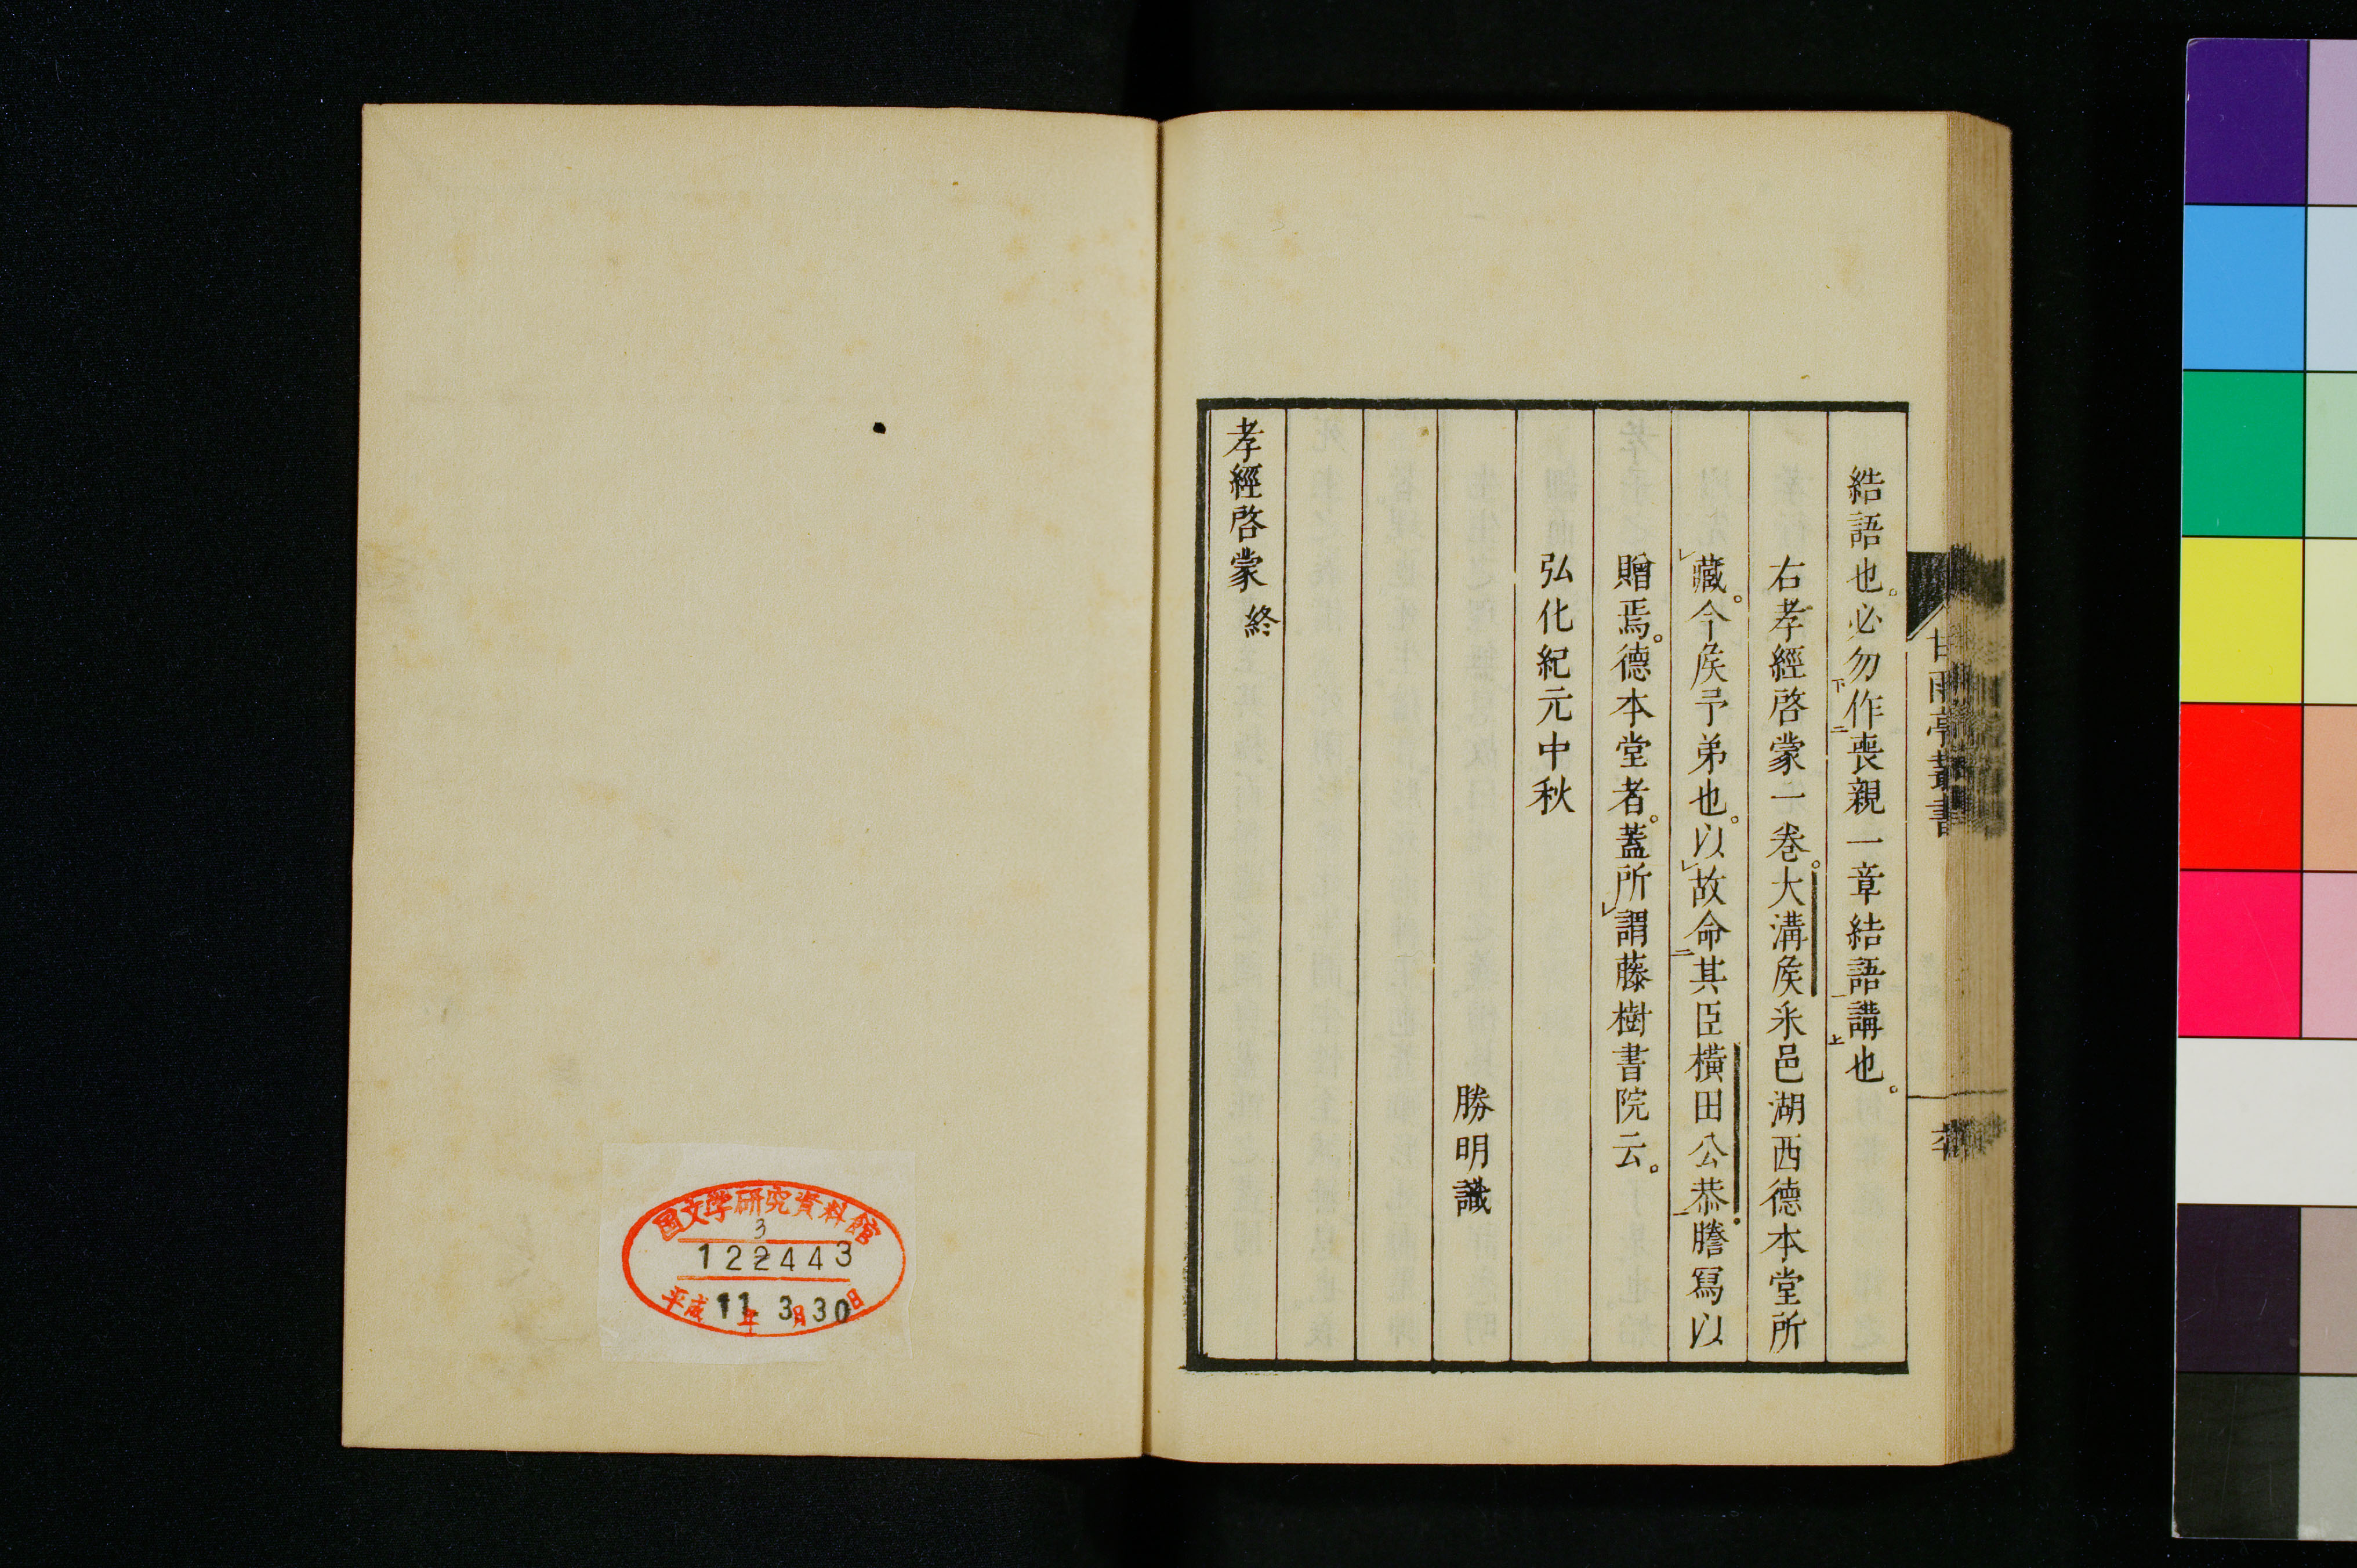 結語也。必勿作喪親一章結語講也。
右孝經啓蒙一卷。大溝矦釆邑湖西德本堂所
藏。今矦予弟也。以故命其臣橫田公恭。謄寫以
贈焉。德本堂者。蓋所謂藤樹書院云。
弘化紀元中秋
勝明識
孝經啓蒙 終
甘雨亭叢書
国文学研究資料館
3
122443
平成11年3月30日